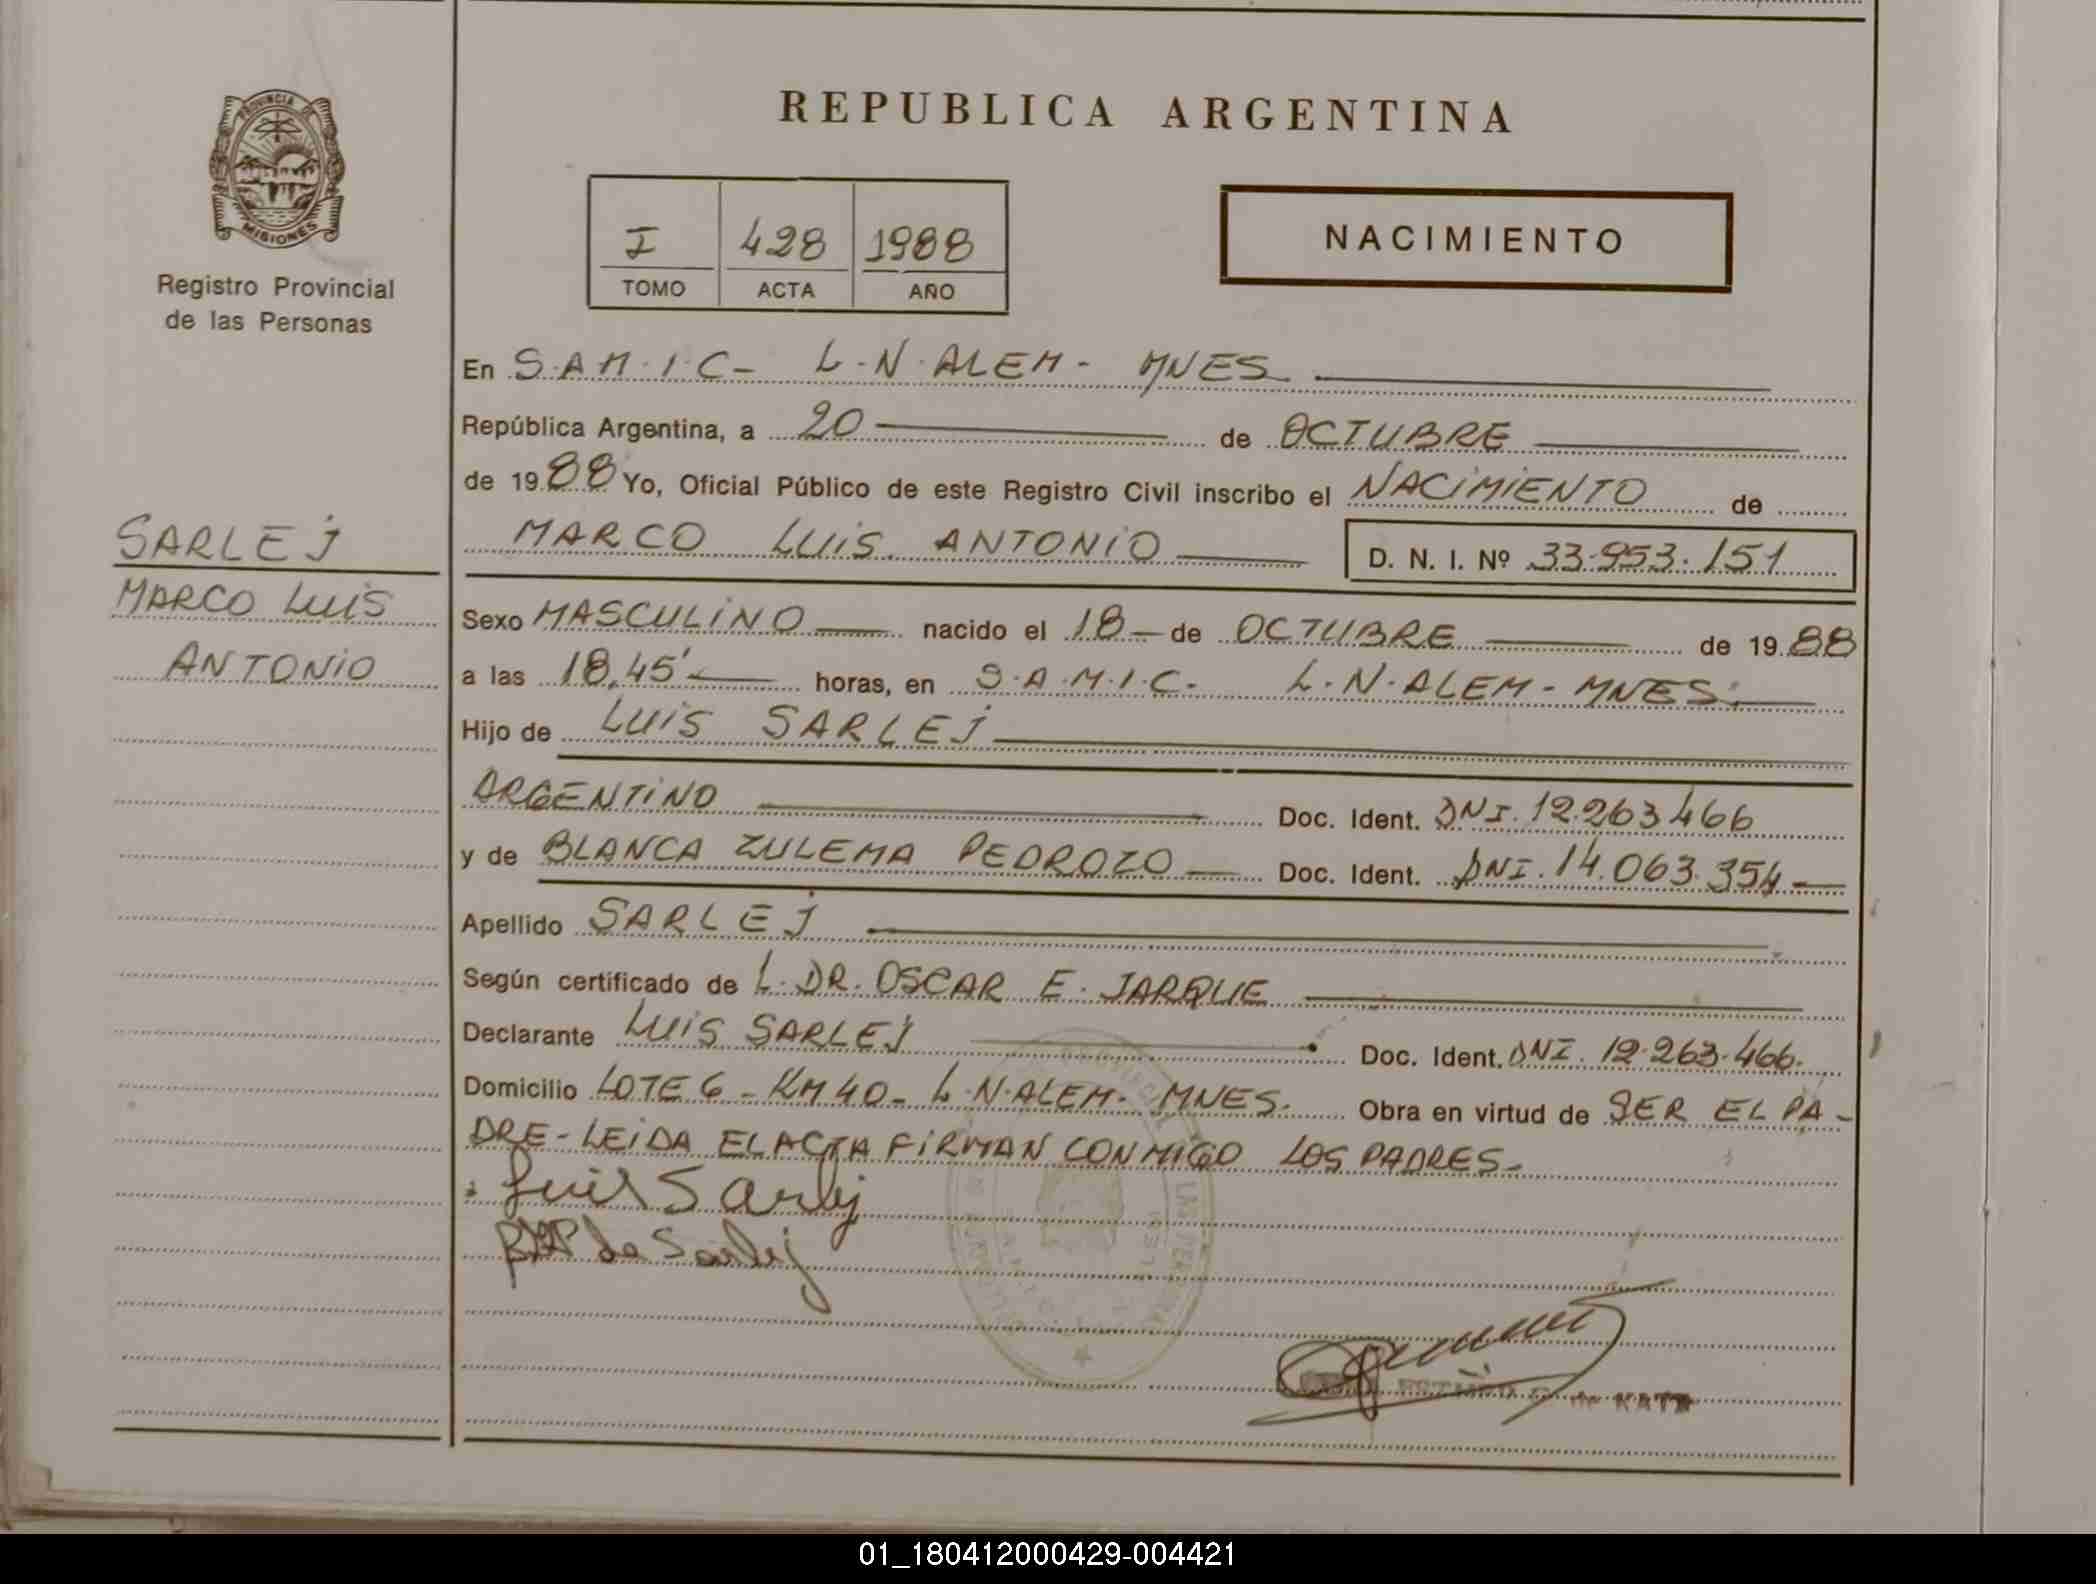 REPUBLICA ARGENTINA
PROVINCIA DE
MISIONES
Registro Provincial
de las Personas
I 428 1988
TOMO ACTA AÑO
NACIMIENTO
En S.A.M.I.C- L.N.ALEM- MNES.
República Argentina, a 20 de OCTUBRE
de 1988 Yo, Oficial Público de este Registro Civil inscribo el NACIMIENTO de
MARCO LUIS ANTONIO D. N. I. Nº 33.953.151
SARLEJ
MARCO LUIS
ANTONIO
Sexo MASCULINO nacido el 18 de OCTUBRE de 1988
a las 18,45' horas, en S.A.M.I.C. L.N.ALEM- MNES.
Hijo de LUIS SARLEJ
ARGENTINO Doc. Ident. DNI. 12.263.466
y de BLANCA ZULEMA PEDROZO Doc. Ident. DNI. 14.063.354
Apellido SARLEJ
Según certificado de L. DR. OSCAR E. JARQUE
Declarante LUIS SARLEJ Doc. Ident. DNI. 12.263.466.
Domicilio LOTE 6 - KM 40 - L.N.ALEM- MNES. Obra en virtud de SER EL PA-
DRE- LEIDA EL ACTA FIRMAN CONMIGO LOS PADRES-
Luis Sarlej
BZP de Sarlej
01_180412000429-004421